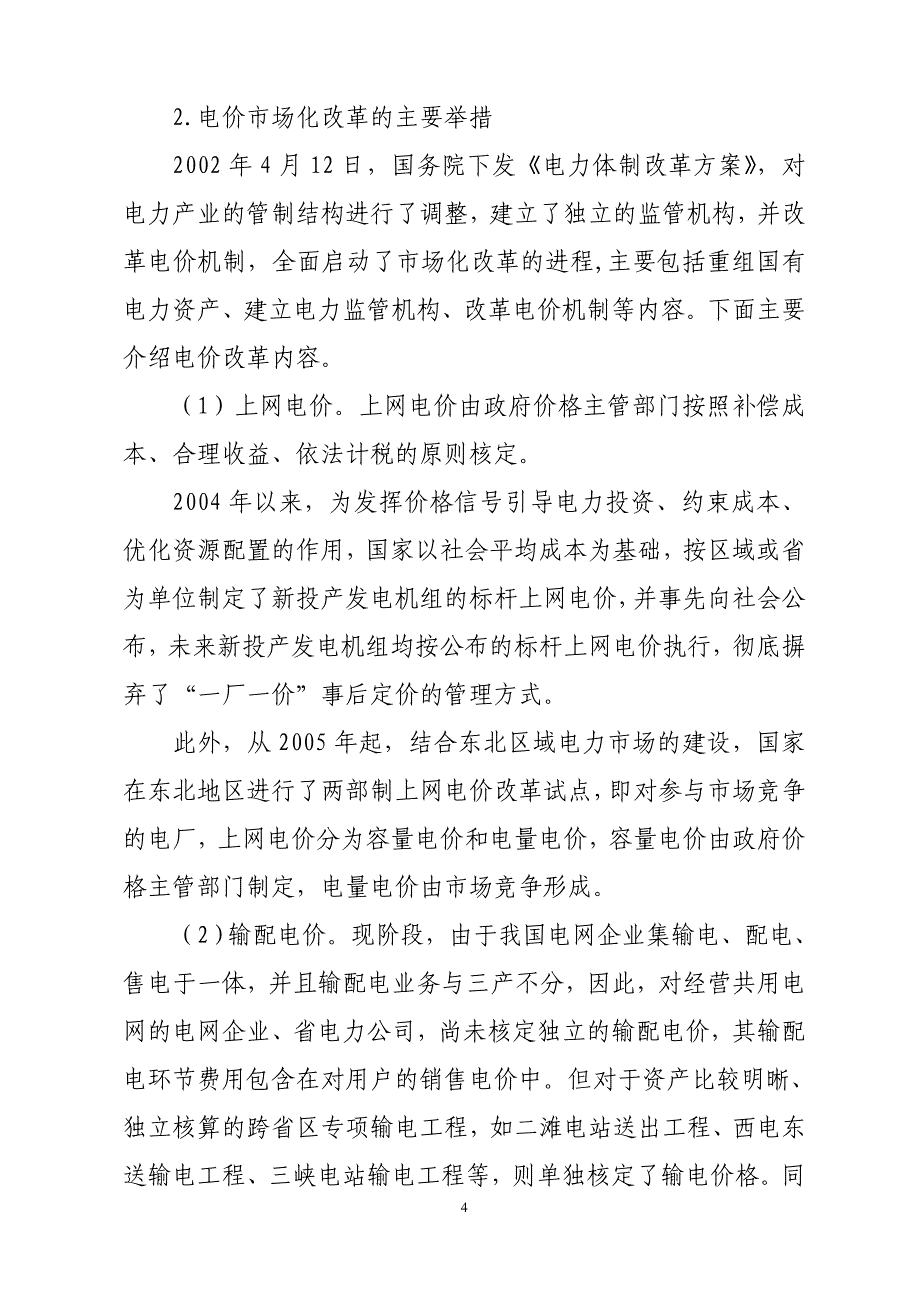 2.电价市场化改革的主要举措
2002 年 4 月 12 日，国务院下发《电力体制改革方案》，对
电力产业的管制结构进行了调整，建立了独立的监管机构，并改
革电价机制，全面启动了市场化改革的进程,主要包括重组国有
电力资产、建立电力监管机构、改革电价机制等内容。下面主要
介绍电价改革内容。
（1）上网电价。上网电价由政府价格主管部门按照补偿成
本、合理收益、依法计税的原则核定。
2004 年以来，为发挥价格信号引导电力投资、约束成本、
优化资源配置的作用，国家以社会平均成本为基础，按区域或省
为单位制定了新投产发电机组的标杆上网电价，并事先向社会公
布，未来新投产发电机组均按公布的标杆上网电价执行，彻底摒
弃了“一厂一价”事后定价的管理方式。
此外，从 2005 年起，结合东北区域电力市场的建设，国家
在东北地区进行了两部制上网电价改革试点，即对参与市场竞争
的电厂，上网电价分为容量电价和电量电价，容量电价由政府价
格主管部门制定，电量电价由市场竞争形成。
（2）输配电价。现阶段，由于我国电网企业集输电、配电、
售电于一体，并且输配电业务与三产不分，因此，对经营共用电
网的电网企业、省电力公司，尚未核定独立的输配电价，其输配
电环节费用包含在对用户的销售电价中。但对于资产比较明晰、
独立核算的跨省区专项输电工程，如二滩电站送出工程、西电东
送输电工程、三峡电站输电工程等，则单独核定了输电价格。同
4